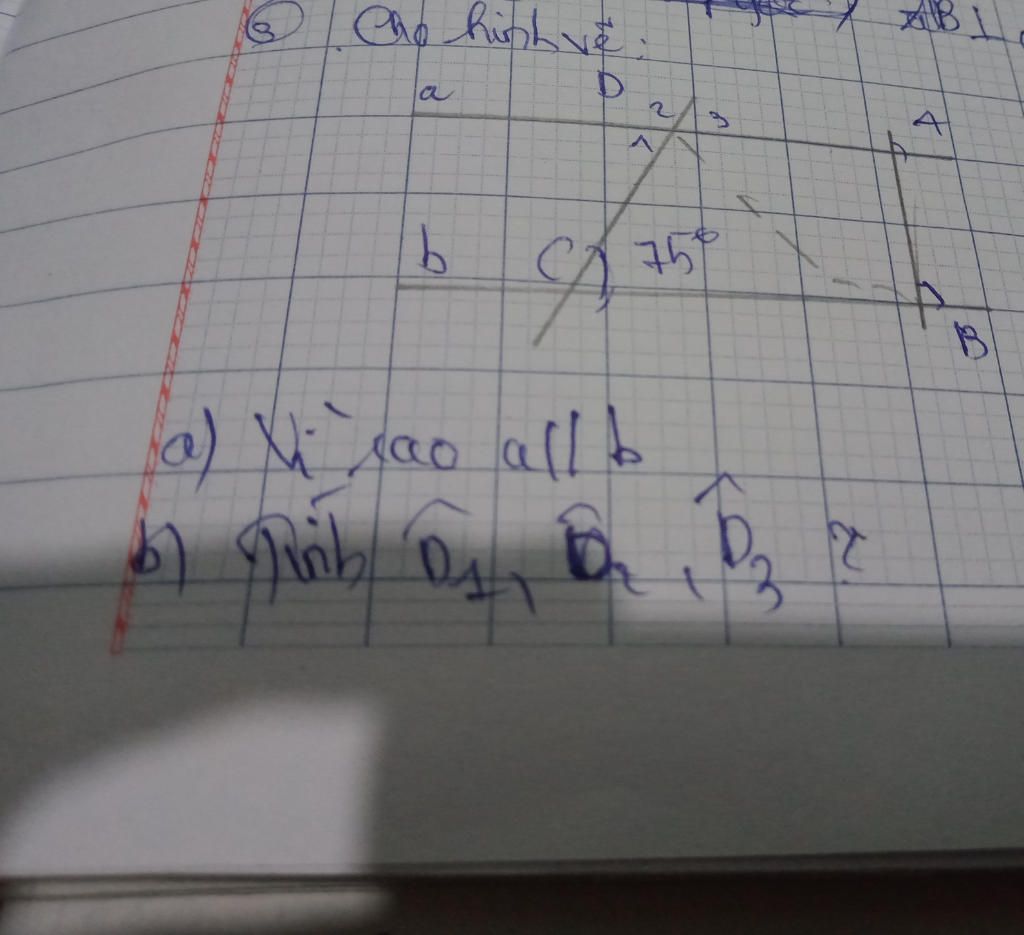 ③ Cho hình vẽ: AB ⊥
a D 2 3 A
1
b C 75°
B
a) Vì sao a // b
b) Tính D̂1, D̂2, D̂3 ?